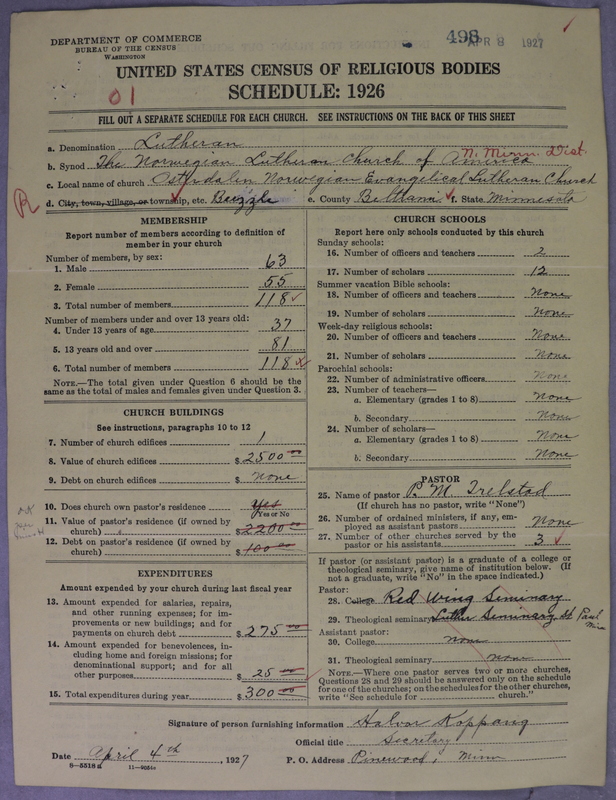 498 APR 8 1927
DEPARTMENT OF COMMERCE
BUREAU OF THE CENSUS
WASHINGTON
UNITED STATES CENSUS OF RELIGIOUS BODIES
01
SCHEDULE: 1926
FILL OUT A SEPARATE SCHEDULE FOR EACH CHURCH. SEE INSTRUCTIONS ON THE BACK OF THIS SHEET
a. Denomination Lutheran
b. Synod The Norwegian Lutheran Church of America N. Minn. Dist.
c. Local name of church Osterdalen Norwegian Evangelical Lutheran Church
R
d. City, town, village, or township, etc. Buzzle e. County Beltrami f. State Minnesota
MEMBERSHIP
Report number of members according to definition of
member in your church
Number of members, by sex:
1. Male 63
2. Female 55
3. Total number of members 118
Number of members under and over 13 years old:
4. Under 13 years of age 37
5. 13 years old and over 81
6. Total number of members 118
NOTE.—The total given under Question 6 should be the
same as the total of males and females given under Question 3.
CHURCH BUILDINGS
See instructions, paragraphs 10 to 12
7. Number of church edifices 1
8. Value of church edifices $2500.00
9. Debt on church edifices $ none
10. Does church own pastor's residence Yes
Yes or No
11. Value of pastor's residence (if owned by
church) $2200.00
12. Debt on pastor's residence (if owned by
church) $100.00
EXPENDITURES
Amount expended by your church during last fiscal year
13. Amount expended for salaries, repairs,
and other running expenses; for im-
provements or new buildings; and for
payments on church debt $275.00
14. Amount expended for benevolences, in-
cluding home and foreign missions; for
denominational support; and for all
other purposes $25.00
15. Total expenditures during year $300.00
CHURCH SCHOOLS
Report here only schools conducted by this church
Sunday schools:
16. Number of officers and teachers 2
17. Number of scholars 12
Summer vacation Bible schools:
18. Number of officers and teachers None
19. Number of scholars None
Week-day religious schools:
20. Number of officers and teachers None
21. Number of scholars None
Parochial schools:
22. Number of administrative officers None
23. Number of teachers—
a. Elementary (grades 1 to 8) None
b. Secondary None
24. Number of scholars—
a. Elementary (grades 1 to 8) None
b. Secondary None
PASTOR
25. Name of pastor P. M. Trelstad
(If church has no pastor, write "None")
26. Number of ordained ministers, if any, em-
ployed as assistant pastors None
27. Number of other churches served by the
pastor or his assistants 3
If pastor (or assistant pastor) is a graduate of a college or
theological seminary, give name of institution below. (If
not a graduate, write "No" in the space indicated.)
Pastor:
28. College Red Wing Seminary
29. Theological seminary Luther Seminary St Paul Minn
Assistant pastor:
30. College none
31. Theological seminary none
NOTE.—Where one pastor serves two or more churches,
Questions 28 and 29 should be answered only on the schedule
for one of the churches; on the schedules for the other churches,
write "See schedule for church."
Signature of person furnishing information Halvor Koppang
Official title Secretary
Date April 4th, 1927 P. O. Address Pinewood, Minn
8—5518a 11—9034a